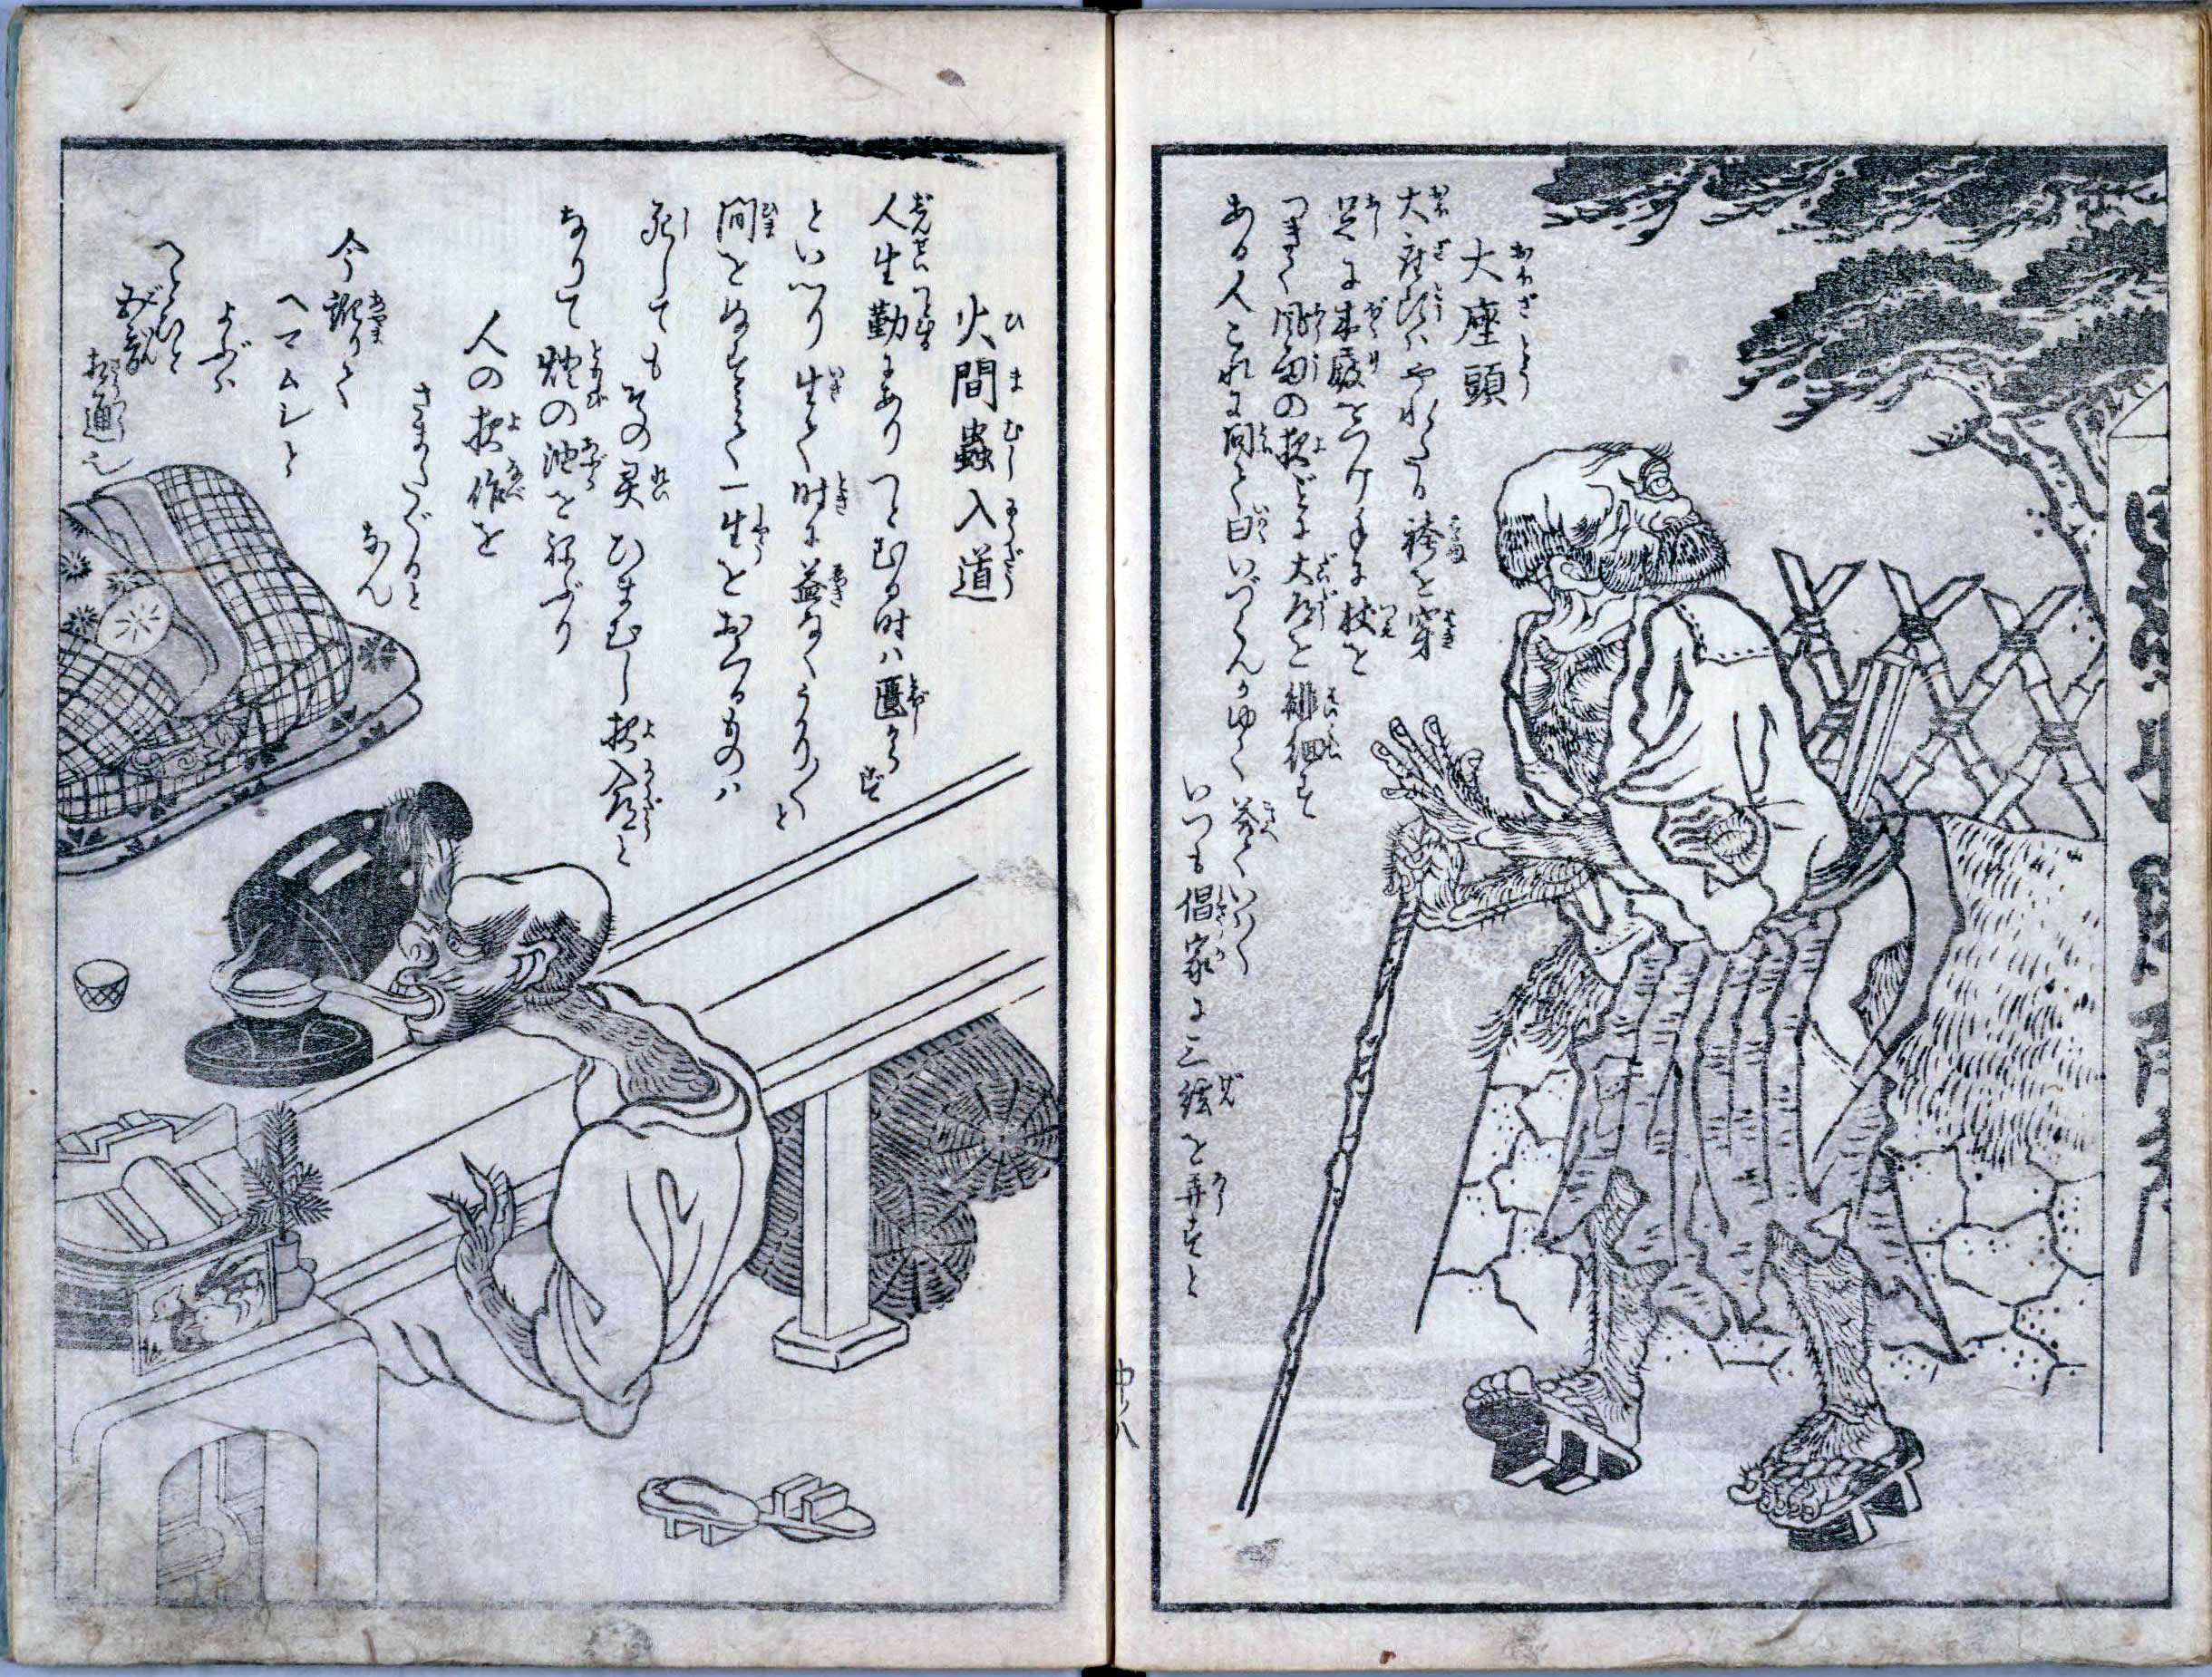 大座頭
大座頭ハやれたる袴を穿
足に木履をつけ手に杖を
つきて風雨の夜ごとに大道を徘徊す
ある人これに問て曰いづくんかゆく答ていはく
いつも倡家に三絃を弄すと
中八
火間蟲入道
人生勤にありつとむる時ハ匱からず
といへり生て時に益なくうかり〳〵と
間をぬすみて一生をおくるものハ
死してもその灵ひまむし夜入道と
なりて燈の油をねぶり
人の夜作を
さまたぐると
なん
今訛りて
ヘマムシと
よぶハ
へとひと
五音
相通也